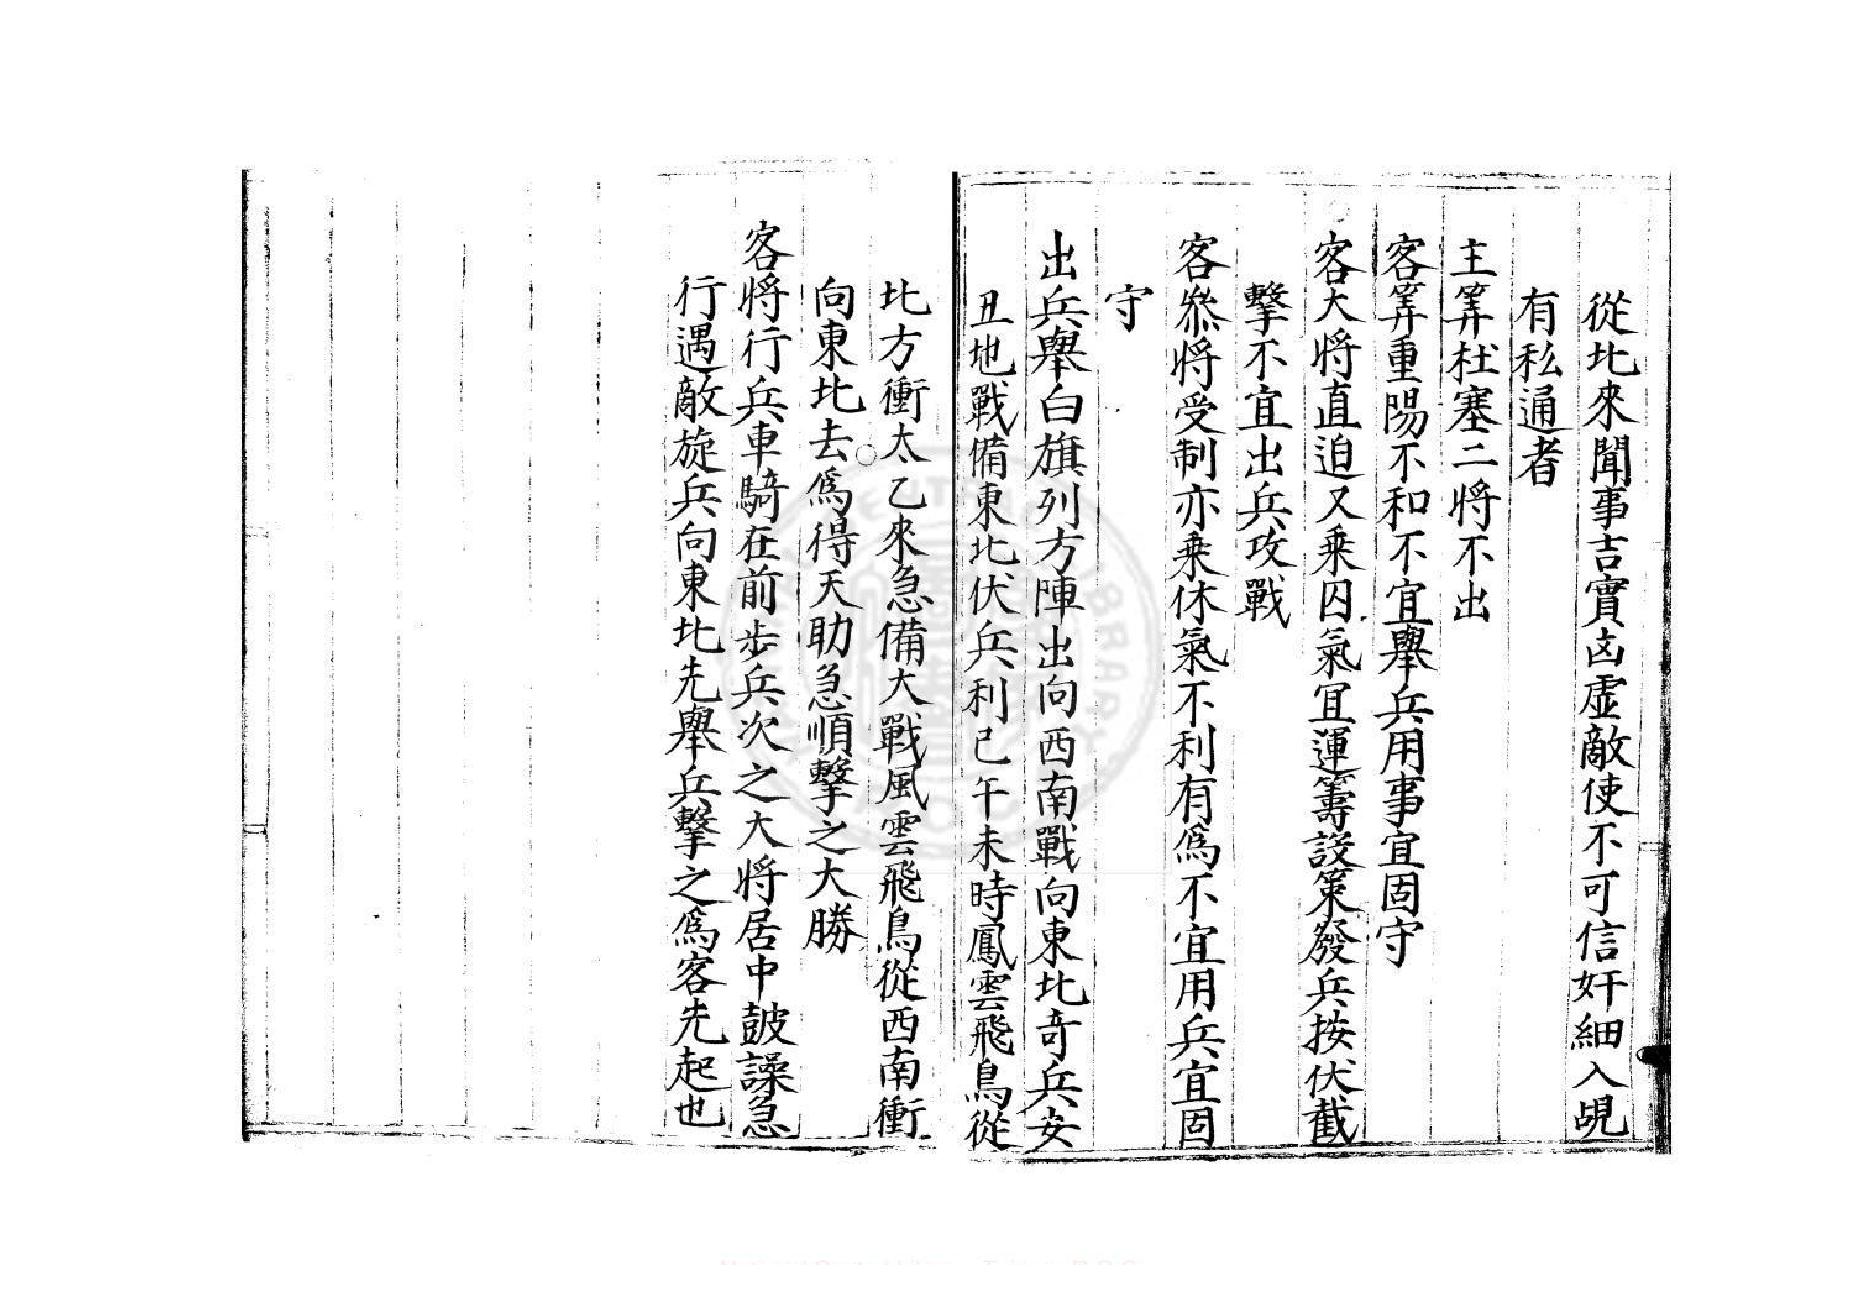 從北來聞事吉實凶虛敵使不可信奸細入覘
有私通者
主筭杜塞二將不出
客筭重陽不和不宜舉兵用事宜固守
客大將直迫又乗囚氣宜運籌設策發兵按伏截
擊不宜出兵攻戰
客叅將受制亦乗休氣不利有爲不宜用兵宜固
守
出兵舉白旗列方陣出向西南戰向東北奇兵安
丑地戰備東北伏兵利已午未時鳳雲飛鳥從
北方衝太乙來急備大戰風雲飛鳥從西南衝
向東北去爲得天助急順擊之大勝
客將行兵車騎在前步兵次之大將居中鼓譟急
行遇敵旋兵向東北先舉兵擊之爲客先起也